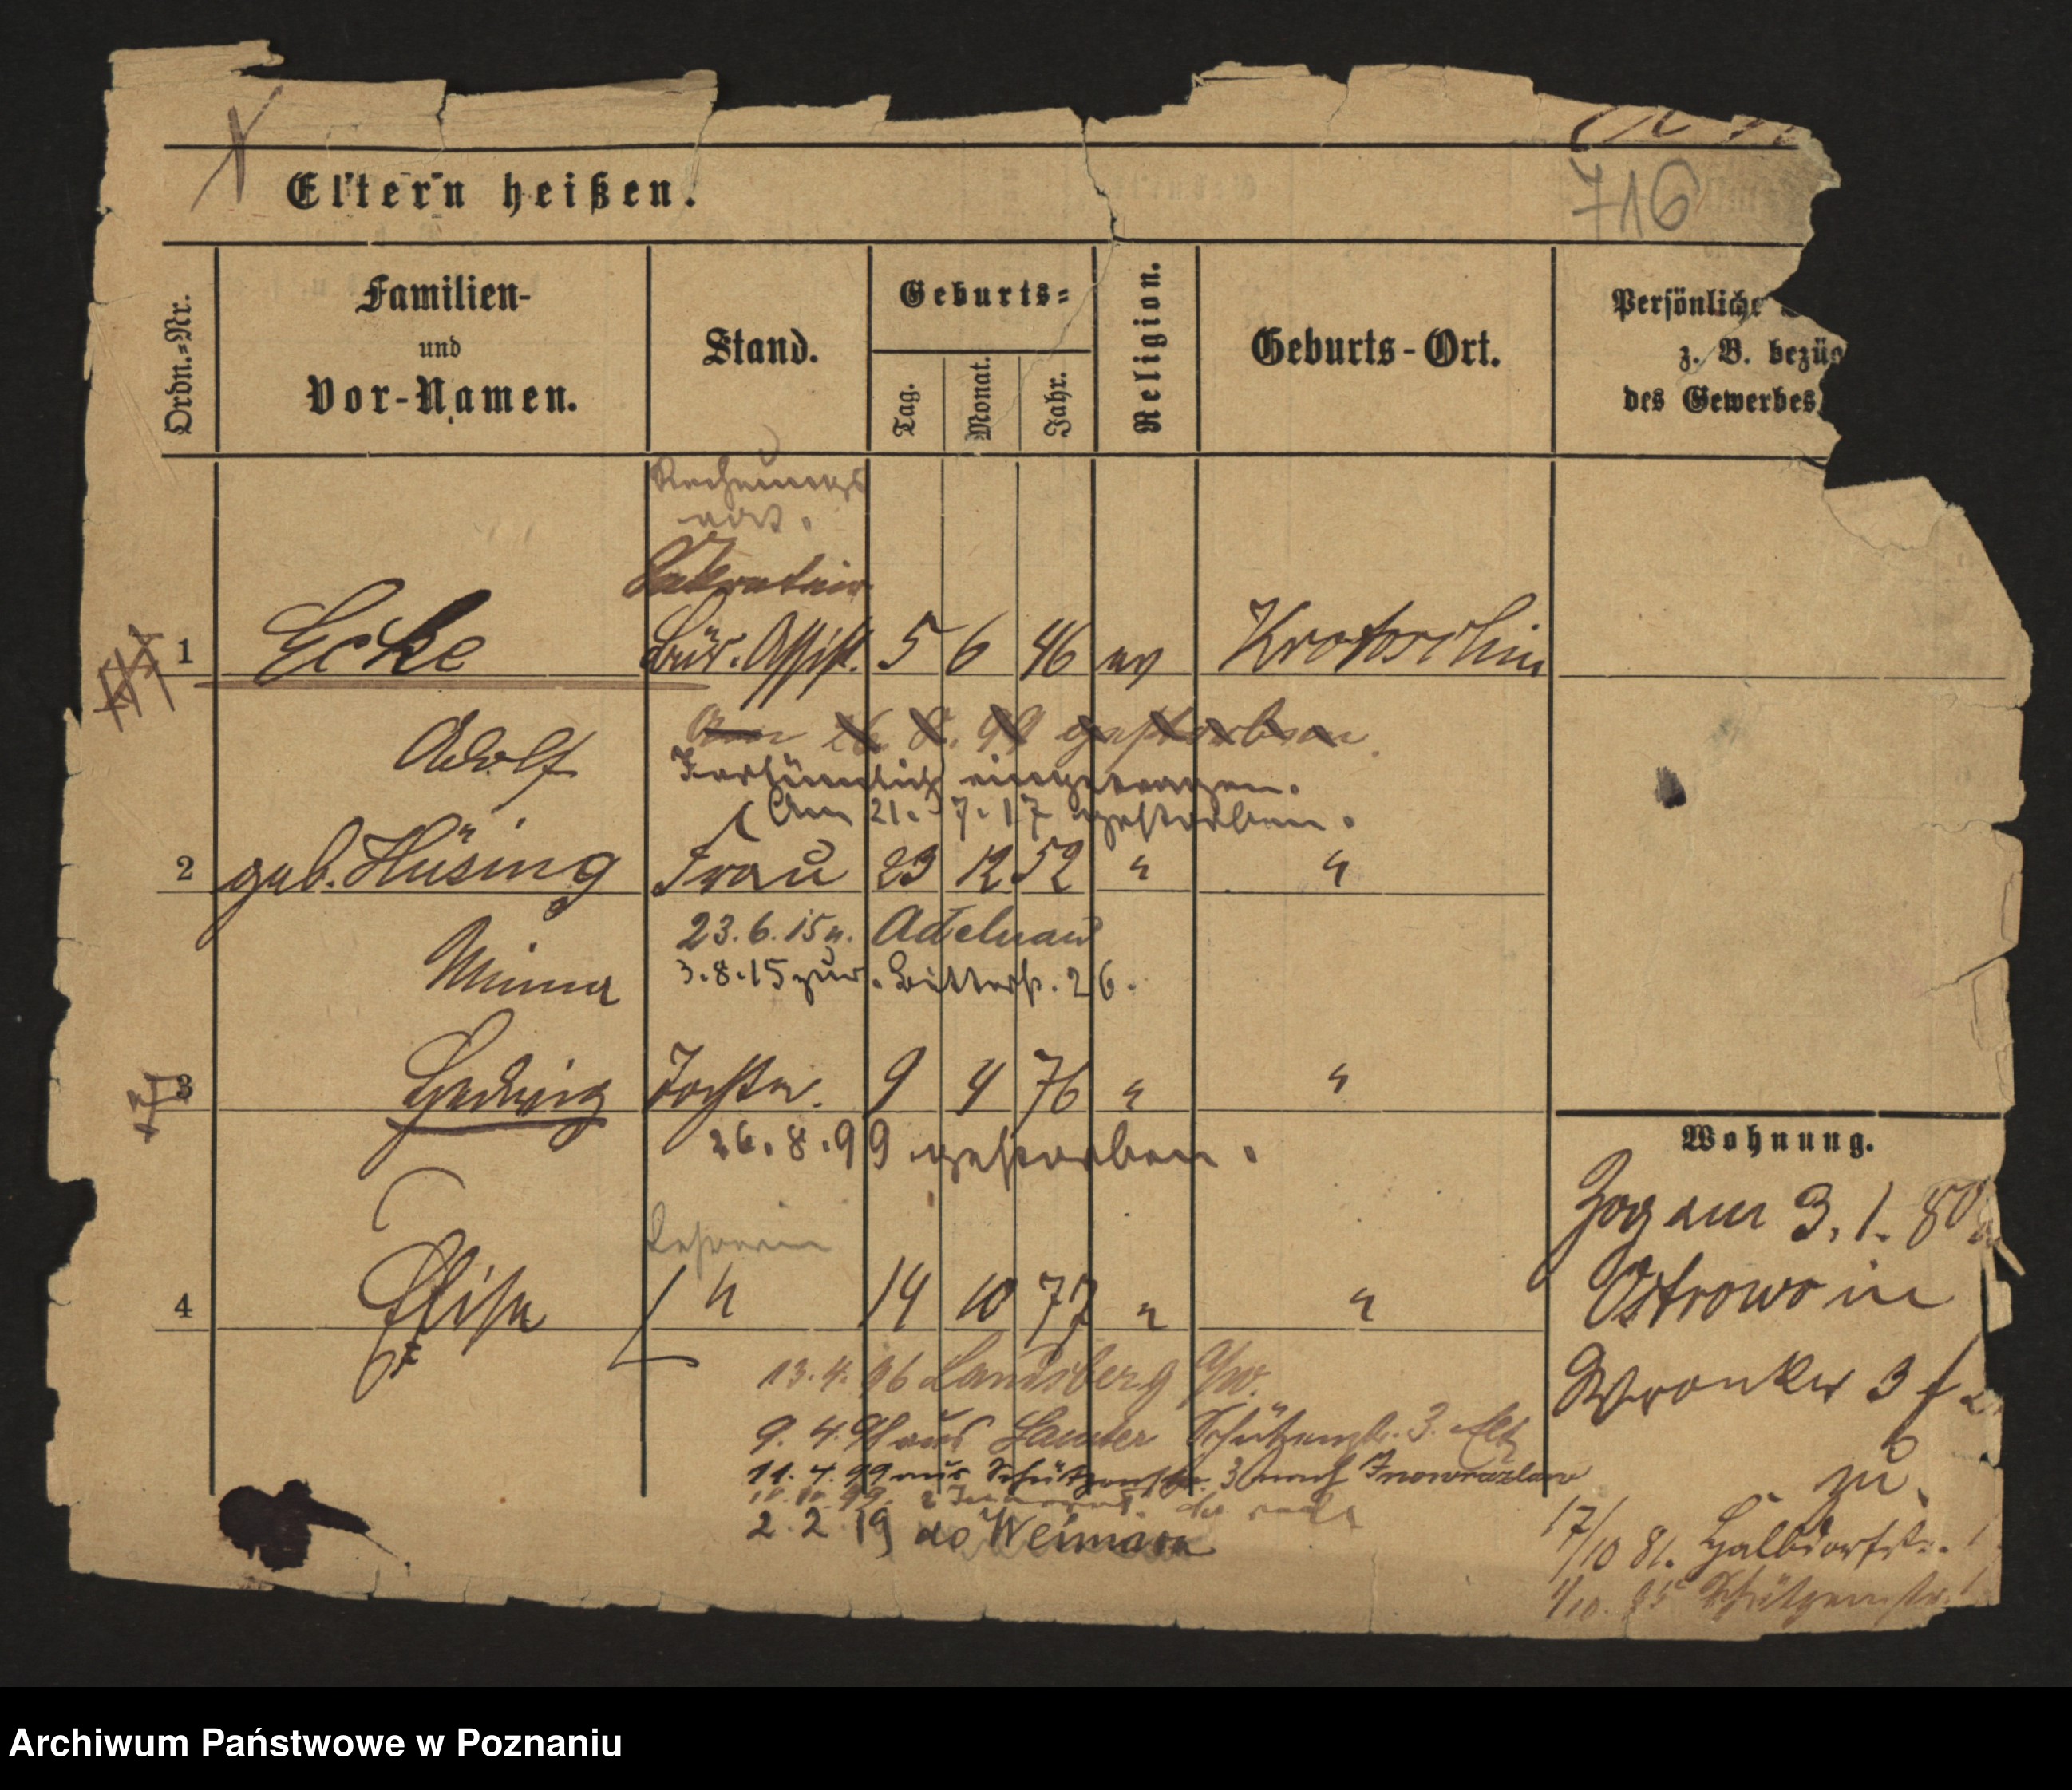 716
Eltern heißen.
Ordn.-Nr.
Familien-
und
Vor-Namen.
Stand.
Geburts-
Tag.
Monat.
Jahr.
Religion.
Geburts-Ort.
Persönliche
z. B. bezüg
des Gewerbes
Rechnungs
rat.
Sekretair
1 Ecke Bür. Assist. 5 6 46 ev Krotoschin
Adolf
Am 26. 8. 99 gestorben.
Irrtümlich eingetragen.
Am 21. 7. 17 gestorben.
2 geb. Hüsing Frau 23 12 52 " "
Minna
23. 6. 15 n. Adelnau
3. 8. 15 zur. Bitterstr. 26.
3 Hedwig Tochter. 9 4 76 " "
26. 8. 99 gestorben.
Lehrerin
4 Elise " 14 10 77 " "
13. 4. 96 Landsberg a/w.
9. 4. 98 aus Samter Schützenstr. 3.
11. 4. 99 aus Schützenstr. 3 nach Inowrazlaw
2. 2. 19 do Weimar
Wohnung.
Zog am 3. 1. 80
Ostrowo in
Wronker 3
zu
17/10 81. Halbdorfstr.
1/10. 85 Schützenstr.
Archiwum Państwowe w Poznaniu